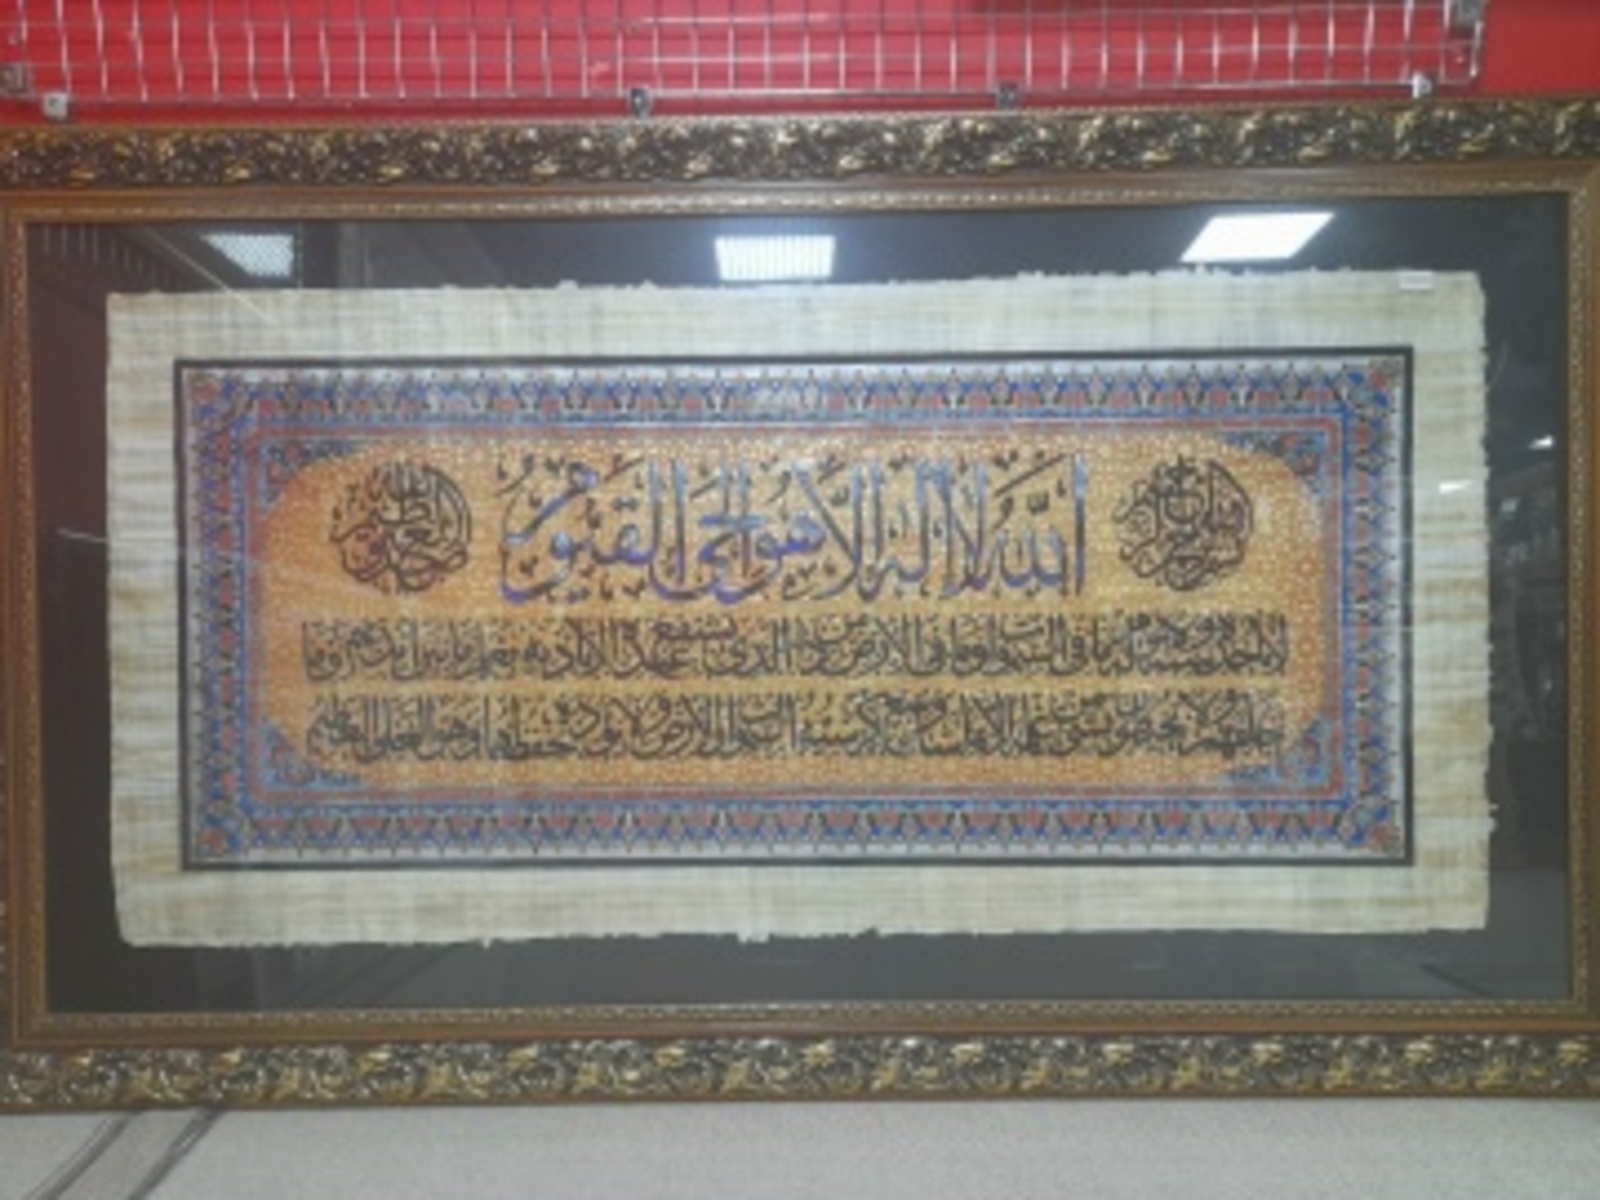 بسم الله الرحمن الرحيم
الله لا إله إلا هو الحي القيوم
صدق الله العظيم
لا تأخذه سنة ولا نوم له ما في السموات وما في الأرض من ذا الذي يشفع عنده إلا بإذنه يعلم ما بين أيديهم وما
خلفهم ولا يحيطون بشيء من علمه إلا بما شاء وسع كرسيه السموات والأرض ولا يؤده حفظهما وهو العلي العظيم